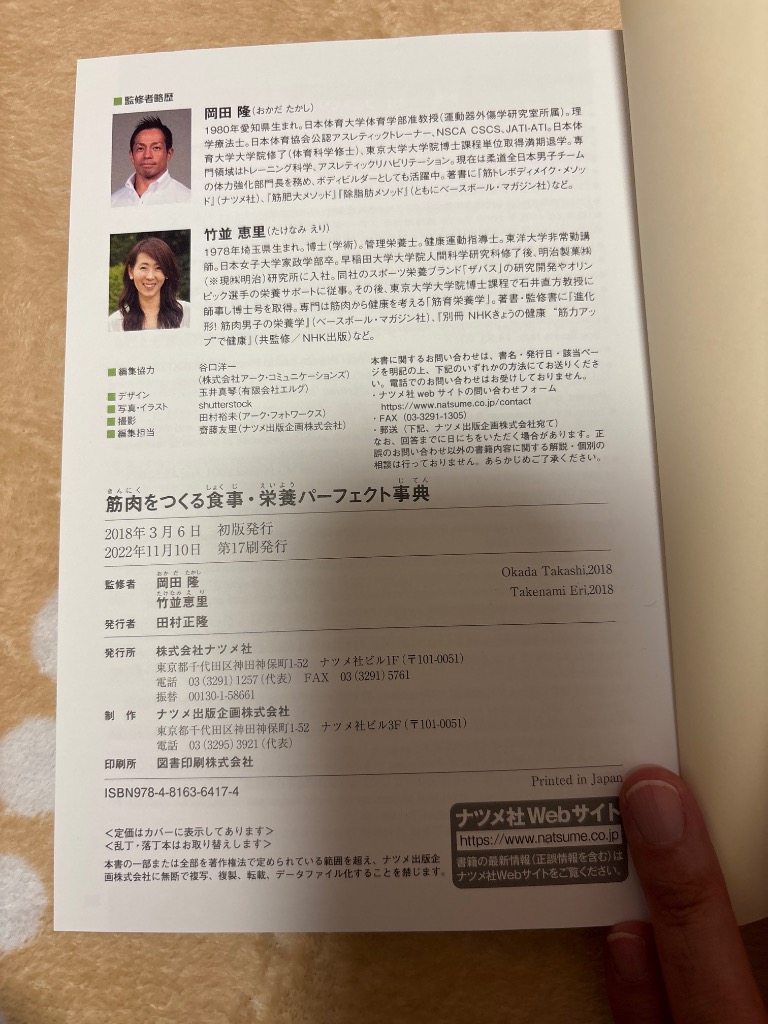 ■監修者略歴
岡田 隆(おかだ たかし)
1980年愛知県生まれ。日本体育大学体育学部准教授(運動器外傷学研究室所属)。理
学療法士。日本体育協会公認アスレティックトレーナー、NSCA CSCS、JATI-ATI。日本体
育大学大学院修了(体育科学修士)、東京大学大学院博士課程単位取得満期退学。専
門領域はトレーニング科学、アスレティックリハビリテーション。現在は柔道全日本男子チーム
の体力強化部門長を務め、ボディビルダーとしても活躍中。著書に『筋トレボディメイク・メソッ
ド』(ナツメ社)、『筋肥大メソッド』『除脂肪メソッド』(ともにベースボール・マガジン社)など。
竹並 恵里(たけなみ えり)
1978年埼玉県生まれ。博士(学術)。管理栄養士。健康運動指導士。東洋大学非常勤講
師。日本女子大学家政学部卒。早稲田大学大学院人間科学研究科修了後、明治製菓㈱
(※現㈱明治)研究所に入社。同社のスポーツ栄養ブランド「ザバス」の研究開発やオリン
ピック選手の栄養サポートに従事。その後、東京大学大学院博士課程で石井直方教授に
師事し博士号を取得。専門は筋肉から健康を考える「筋育栄養学」。著書・監修書に『進化
形! 筋肉男子の栄養学』(ベースボール・マガジン社)、『別冊 NHKきょうの健康 “筋力アッ
プ”で健康』(共監修/NHK出版)など。
■編集協力 谷口洋一
(株式会社アーク・コミュニケーションズ)
■デザイン 玉井真琴(有限会社エルグ)
■写真・イラスト shutterstock
■撮影 田村裕未(アーク・フォトワークス)
■編集担当 齋藤友里(ナツメ出版企画株式会社)
本書に関するお問い合わせは、書名・発行日・該当ペー
ジを明記の上、下記のいずれかの方法にてお送りくださ
い。電話でのお問い合わせはお受けしておりません。
・ナツメ社 web サイトの問い合わせフォーム
https://www.natsume.co.jp/contact
・FAX (03-3291-1305)
・郵送 (下記、ナツメ出版企画株式会社宛て)
なお、回答までに日にちをいただく場合があります。正
誤のお問い合わせ以外の書籍内容に関する解説・個別の
相談は行っておりません。あらかじめご了承ください。
きんにく しょくじ えいよう じてん
筋肉をつくる食事・栄養パーフェクト事典
2018年3月6日 初版発行
2022年11月10日 第17刷発行
おかだ たかし
監修者 岡田 隆 Okada Takashi,2018
たけなみ えり
竹並恵里 Takenami Eri,2018
発行者 田村正隆
発行所 株式会社ナツメ社
東京都千代田区神田神保町1-52 ナツメ社ビル1F(〒101-0051)
電話 03(3291)1257(代表) FAX 03(3291)5761
振替 00130-1-58661
制 作 ナツメ出版企画株式会社
東京都千代田区神田神保町1-52 ナツメ社ビル3F(〒101-0051)
電話 03(3295)3921(代表)
印刷所 図書印刷株式会社
ISBN978-4-8163-6417-4
Printed in Japan
<定価はカバーに表示してあります>
<乱丁・落丁本はお取り替えします>
本書の一部または全部を著作権法で定められている範囲を超え、ナツメ出版企
画株式会社に無断で複写、複製、転載、データファイル化することを禁じます。
ナツメ社Webサイト
https://www.natsume.co.jp
書籍の最新情報(正誤情報を含む)は
ナツメ社Webサイトをご覧ください。